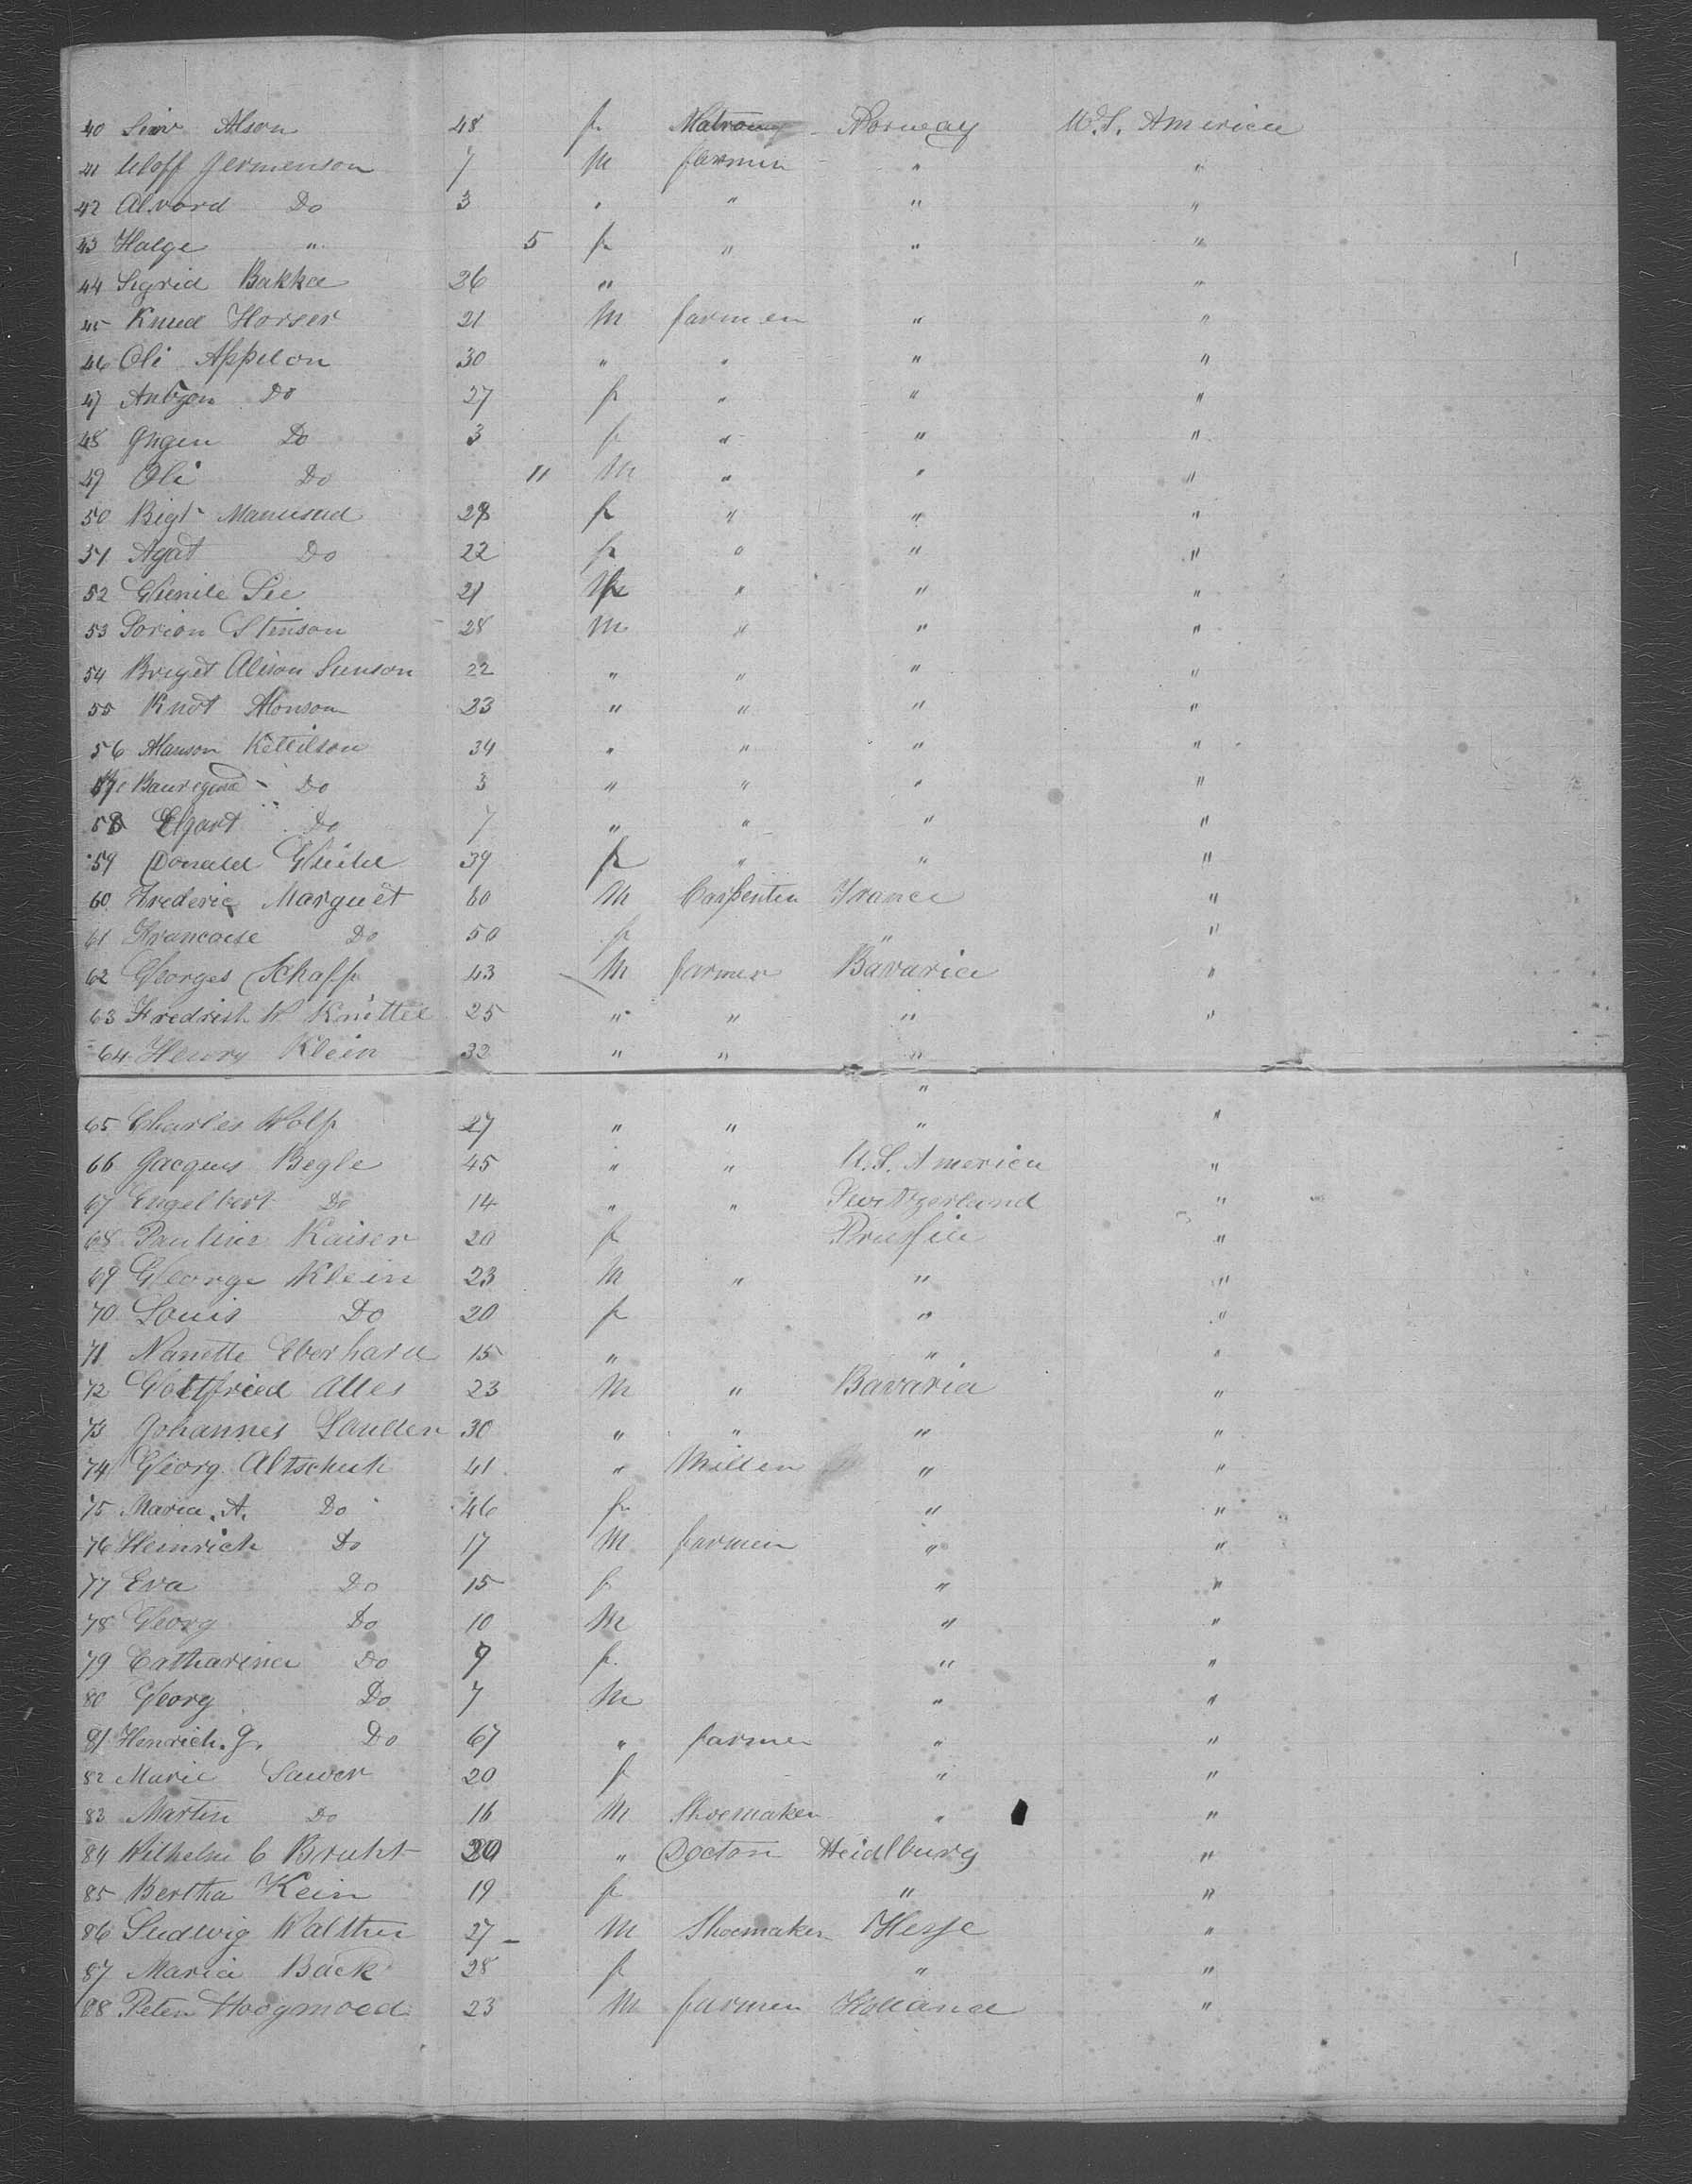 40 Siw Alson 48 f Matrong Norway U.S. America
41 Uloff Jermenson 7 M farmer " "
42 Alvord Do 3 " " " "
43 Halge " 5 f " " "
44 Sigrid Bakka 26 " "
45 Knud Horser 21 M farmer " "
46 Oli Appelon 30 " " " "
47 Do 27 f " " "
48 Ingen Do 3 f " " "
49 Oli Do 11 M " " "
50 Bigt Manusud f " " "
51 Agat Do 22 f " " "
52 21 " " "
53 Sorion Stinson 28 M " " "
54 Briget Alison Sunson 22 " " " "
55 Knot Alonson 23 " " " "
56 Alanson Kettilson 34 " " " "
57 Do 3 " " " "
58 Elgart Do 7 " " " "
59 Donald 39 f " " "
60 Frederic Marguet 60 M Carpenter France "
61 Francoise Do 50 f " "
62 Georges Schaff 43 M farmer Bavaria "
63 Fredrich W Knittel 25 " " " "
64 Henry Klein 32 " " "
"
65 Charles Wolf 27 " " " "
66 Jacques Begle 45 " " U.S. America "
67 Engelbert Do 14 " " Switzerland "
68 Pauline Kaiser 20 f Prussia "
69 George Klein 23 M " " "
70 Louis Do 20 f " "
71 Nanette Eberhard 15 " " "
72 Gottfried Alles 23 M " Bavaria "
73 Johannes Saulter 30 " " " "
74 Georg Altschuh 41 " Miller " "
75 Maria. A. Do 46 f " "
76 Heinrich Do 17 M farmer " "
77 Eva Do 15 f " "
78 Georg Do 10 M " "
79 Catharina Do 9 f " "
80 Georg Do 7 M " "
81 Henrich. J. Do 67 " farmer " "
82 Marie Sawer 20 f " "
83 Martin Do 16 M Shoemaker " "
84 Wilhelm C Bruht 20 " Doctor Heidlburg "
85 Bertha Kein 19 f " "
86 Ludwig Walther 27 M Shoemaker Hesse "
87 Maria Back 28 f " "
88 Peter Hoogmoed 23 M farmer Holland "